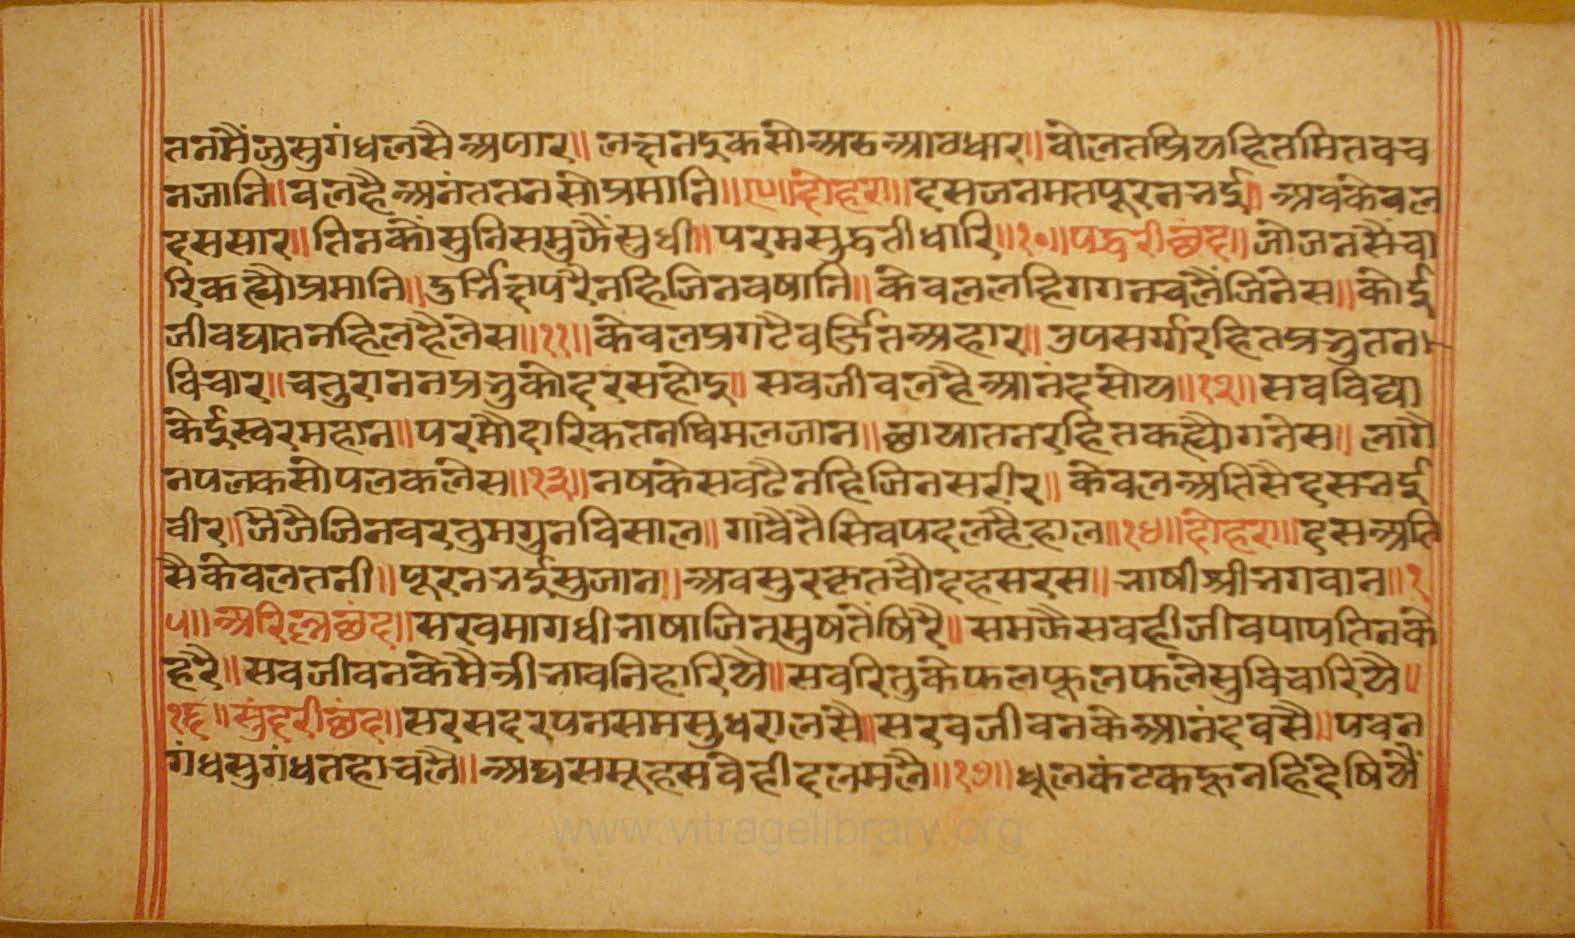 तनमैंजुसुगंधलसैअपार॥ लछनइकसौअठआवधार॥ वोलतप्रियहितमितवच
नजानि॥वलहैअनंततनसौप्रमानि॥९॥दोहरा॥दसजनमतपूरनभई॥ अवकेवल
दससार॥तिनकौंसुनिसमुझैंसुधी॥परमसुद्धतीधारि॥१०॥पद्धरीछंद॥जोजनसैंचा
रिकह्यौप्रमानि॥दुर्भिछपरैनहिजिनवषानि॥केवललहिगगनचलैंजिनेस॥कोई
जीवघातनहिलहैलेस॥११॥केवलप्रगटैवर्जितअहार॥उपसर्गारहितप्रभुतन
विचार॥चतुराननप्रभुकोदरसहोइ॥ सवजीवलहैआनंदसोय॥१२॥सवविद्या
केईस्वरमहान॥परमौदारिकतनविमलजान॥छायातनरहितकह्यौगनेस॥ लागै
नपलकसौपलकलेस॥१३॥नषकेसवढैनहिजिनसरीर॥ केवलअतिसैदसभई
वीर॥जैजैजिनवरतुमगुनविसाल॥गावैतैसिवपदलहैहाल॥१४॥दोहरा॥दसअति
सैकेवलतनी॥पूरनभईसुजान॥अवसुरकृतचौदहसरस॥भाषीश्रीभगवान॥१
५॥अरिल्लछंद॥सरवमागधीभाषाजिनमुषतेंषिरै॥समझैसवहीजीवपापतिनके
हरै॥सवजीवनकेमैत्रीभावनिहारियै॥सवरितुकेफलफूलफलैसुविचारियै॥
१६॥सुंदरीछंद॥सरसदरपनसमसुधरालसै॥सरवजीवनकेआनंदवसै॥पवन
गंधसुगंधतहाचलै॥अघसमूहसवेहीदलमलै॥१७॥धूलकंटकहूनहिदेषियैं
www.vitragelibrary.org